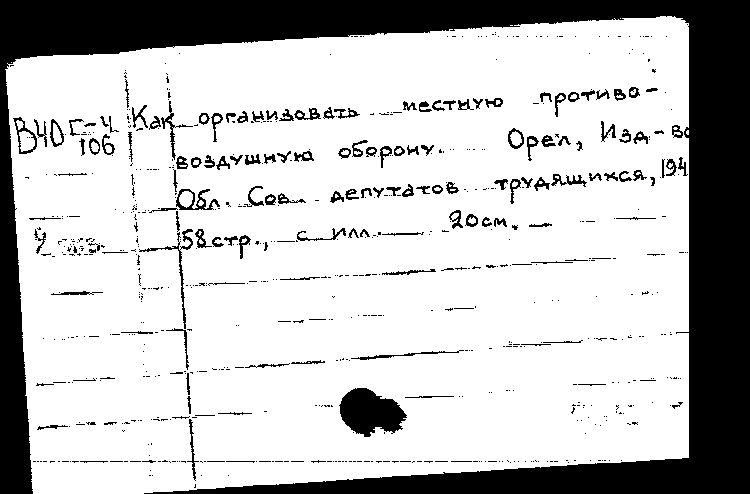 В40 Г-4/106 Как организовать местную противо-
воздушную оборону. Орел, Изд-во
Обл. Сов. депутатов трудящихся, 194
58 стр., с илл. 20 см. —